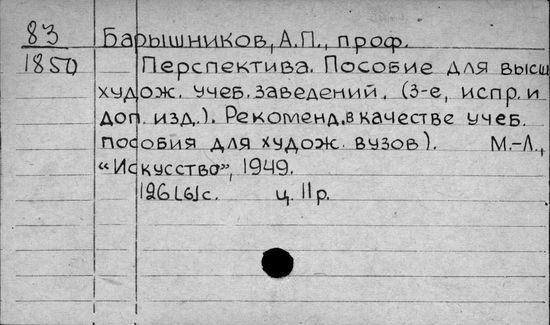 83 Барышников, А.П., проф.
1850 Перспектива. Пособие для высш
худож. учеб. заведений. (3-е, испр. и
доп. изд.). Рекоменд. в качестве учеб.
пособия для худож. вузов). М.-Л.,
"Искусство", 1949.
196 [6] с. ц. 11 р.